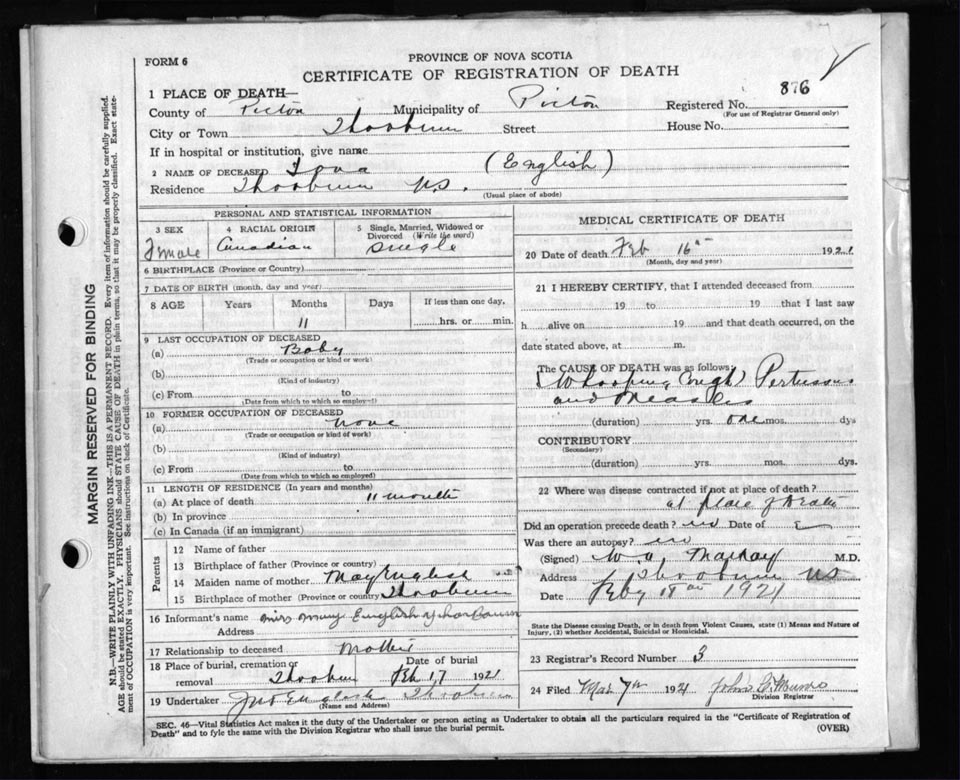 PROVINCE OF NOVA SCOTIA
FORM 6
CERTIFICATE OF REGISTRATION OF DEATH
1 PLACE OF DEATH—
876
County of Pictou Municipality of Pictou Registered No.
(For use of Registrar General only)
City or Town Thorburn Street House No.
If in hospital or institution, give name
2 NAME OF DECEASED (English)
Residence Thorburn N.S.
(Usual place of abode)
PERSONAL AND STATISTICAL INFORMATION
3 SEX 4 RACIAL ORIGIN 5 Single, Married, Widowed or Divorced (Write the word)
Female Canadian Single
6 BIRTHPLACE (Province or Country)
7 DATE OF BIRTH (month, day and year)
8 AGE Years Months Days If less than one day,
11 hrs. or min.
9 LAST OCCUPATION OF DECEASED
(a) Baby
(Trade or occupation or kind or work)
(b)
(Kind of industry)
(c) From to
(Date from which to which so employed)
10 FORMER OCCUPATION OF DECEASED
(a) none
(Trade or occupation or kind of work)
(b)
(Kind of industry)
(c) From to
(Date from which to which so employed)
11 LENGTH OF RESIDENCE (In years and months)
(a) At place of death 11 month
(b) In province
(c) In Canada (if an immigrant)
Parents
12 Name of father
13 Birthplace of father (Province or country)
14 Maiden name of mother May English
15 Birthplace of mother (Province or country) Thorburn
16 Informant's name Miss May English Thorburn
Address
17 Relationship to deceased Mother
18 Place of burial, cremation or removal Thorburn Date of burial Feb 17 1921
19 Undertaker Jno English Thorburn
(Name and Address)
MEDICAL CERTIFICATE OF DEATH
20 Date of death Feb 16th 1921
(Month, day and year)
21 I HEREBY CERTIFY, that I attended deceased from
19 to 19 that I last saw
h alive on 19 and that death occurred, on the
date stated above, at m.
The CAUSE OF DEATH was as follows:
(Whooping Cough) Pertussis
and Measles
(duration) yrs. one mos. dys
CONTRIBUTORY
(Secondary)
(duration) yrs. mos. dys.
22 Where was disease contracted if not at place of death?
at place of death
Did an operation precede death? no Date of
Was there an autopsy? no
(Signed) MacKay M.D.
Address Thorburn NS
Date Feby 18th 1921
State the Disease causing Death, or in Death from Violent Causes, state (1) Means and Nature of
Injury, (2) whether Accidental, Suicidal or Homicidal.
23 Registrar's Record Number 3
24 Filed Mar 7th 1921 John G. Munro
Division Registrar
SEC. 46—Vital Statistics Act makes it the duty of the Undertaker or person acting as Undertaker to obtain all the particulars required in the "Certificate of Registration of
Death" and to fyle the same with the Division Registrar who shall issue the burial permit.
(OVER)
MARGIN RESERVED FOR BINDING
N.B.—WRITE PLAINLY WITH UNFADING INK—THIS IS A PERMANENT RECORD. Every item of information should be carefully supplied.
AGE should be stated EXACTLY. PHYSICIANS should STATE CAUSE OF DEATH in plain terms, so that it may be properly classified. Exact statement of OCCUPATION is very important. See instructions on back of Certificate.